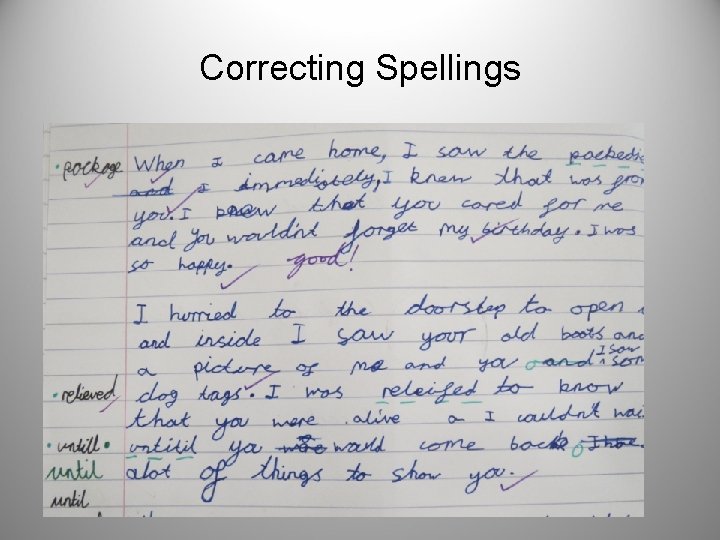 Correcting Spellings
• package When I came home, I saw the packedie
and I immediately, I knew that was from
you. I know that you cared for me
and you wouldn't forget my birthday. I was
so happy. good!
I hurried to the doorstep to open
and inside I saw your old boots and
a picture of me and you and I saw som
• relieved dog tags. I was releifed to know
that you were alive I couldn't wai
• untill • untitil you would come back
until alot of things to show you.
until